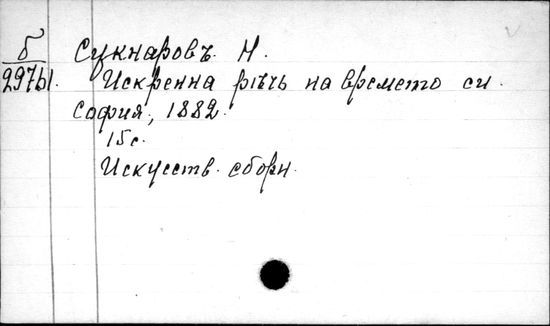 б
29761.
Сукнаровъ. Н.
Искренна рѣчь на времето си.
София, 1882.
15с.
Искусств. сборн.